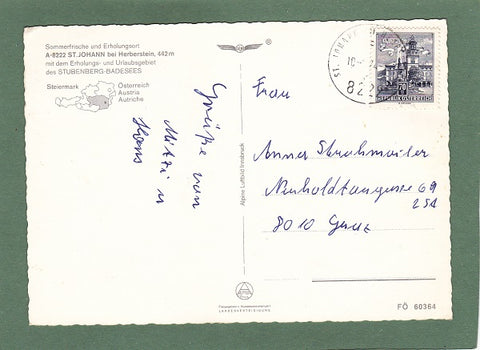 Sommerfrische und Erholungsort
A-8222 ST. JOHANN bei Herberstein, 442m
mit dem Erholungs- und Urlaubsgebiet
des STUBENBERG-BADESEES
Steiermark
Österreich
Austria
Autriche
Grüße von
Mitzi u
Hans
Alpine Luftbild Innsbruck
ST. JOHANN
822
REPUBLIK ÖSTERREICH
Frau
Anna Strohmaier
Neuholdaugasse 69
8010 Graz
FÖ 60364